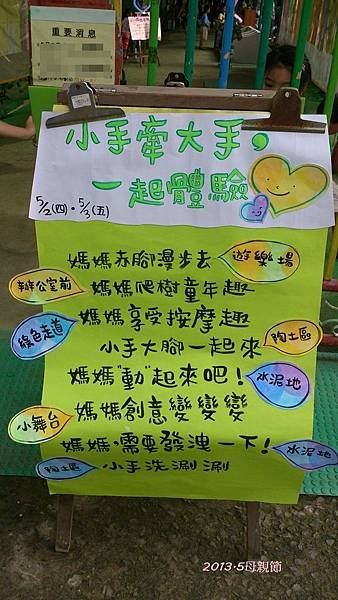 重要消息
小手牽大手，
一起體驗
5/2(四)·5/3(五)
媽媽赤腳漫步去 遊樂場
辦公室前 媽媽爬樹童年趣
綠色走道 媽媽享受按摩趣
小手大腳一起來 陶土區
媽媽"動"起來吧！ 水泥地
小舞台 媽媽創意變變變
媽媽，需要發洩一下！ 水泥地
陶土區 小手洗涮涮
2013·5母親節